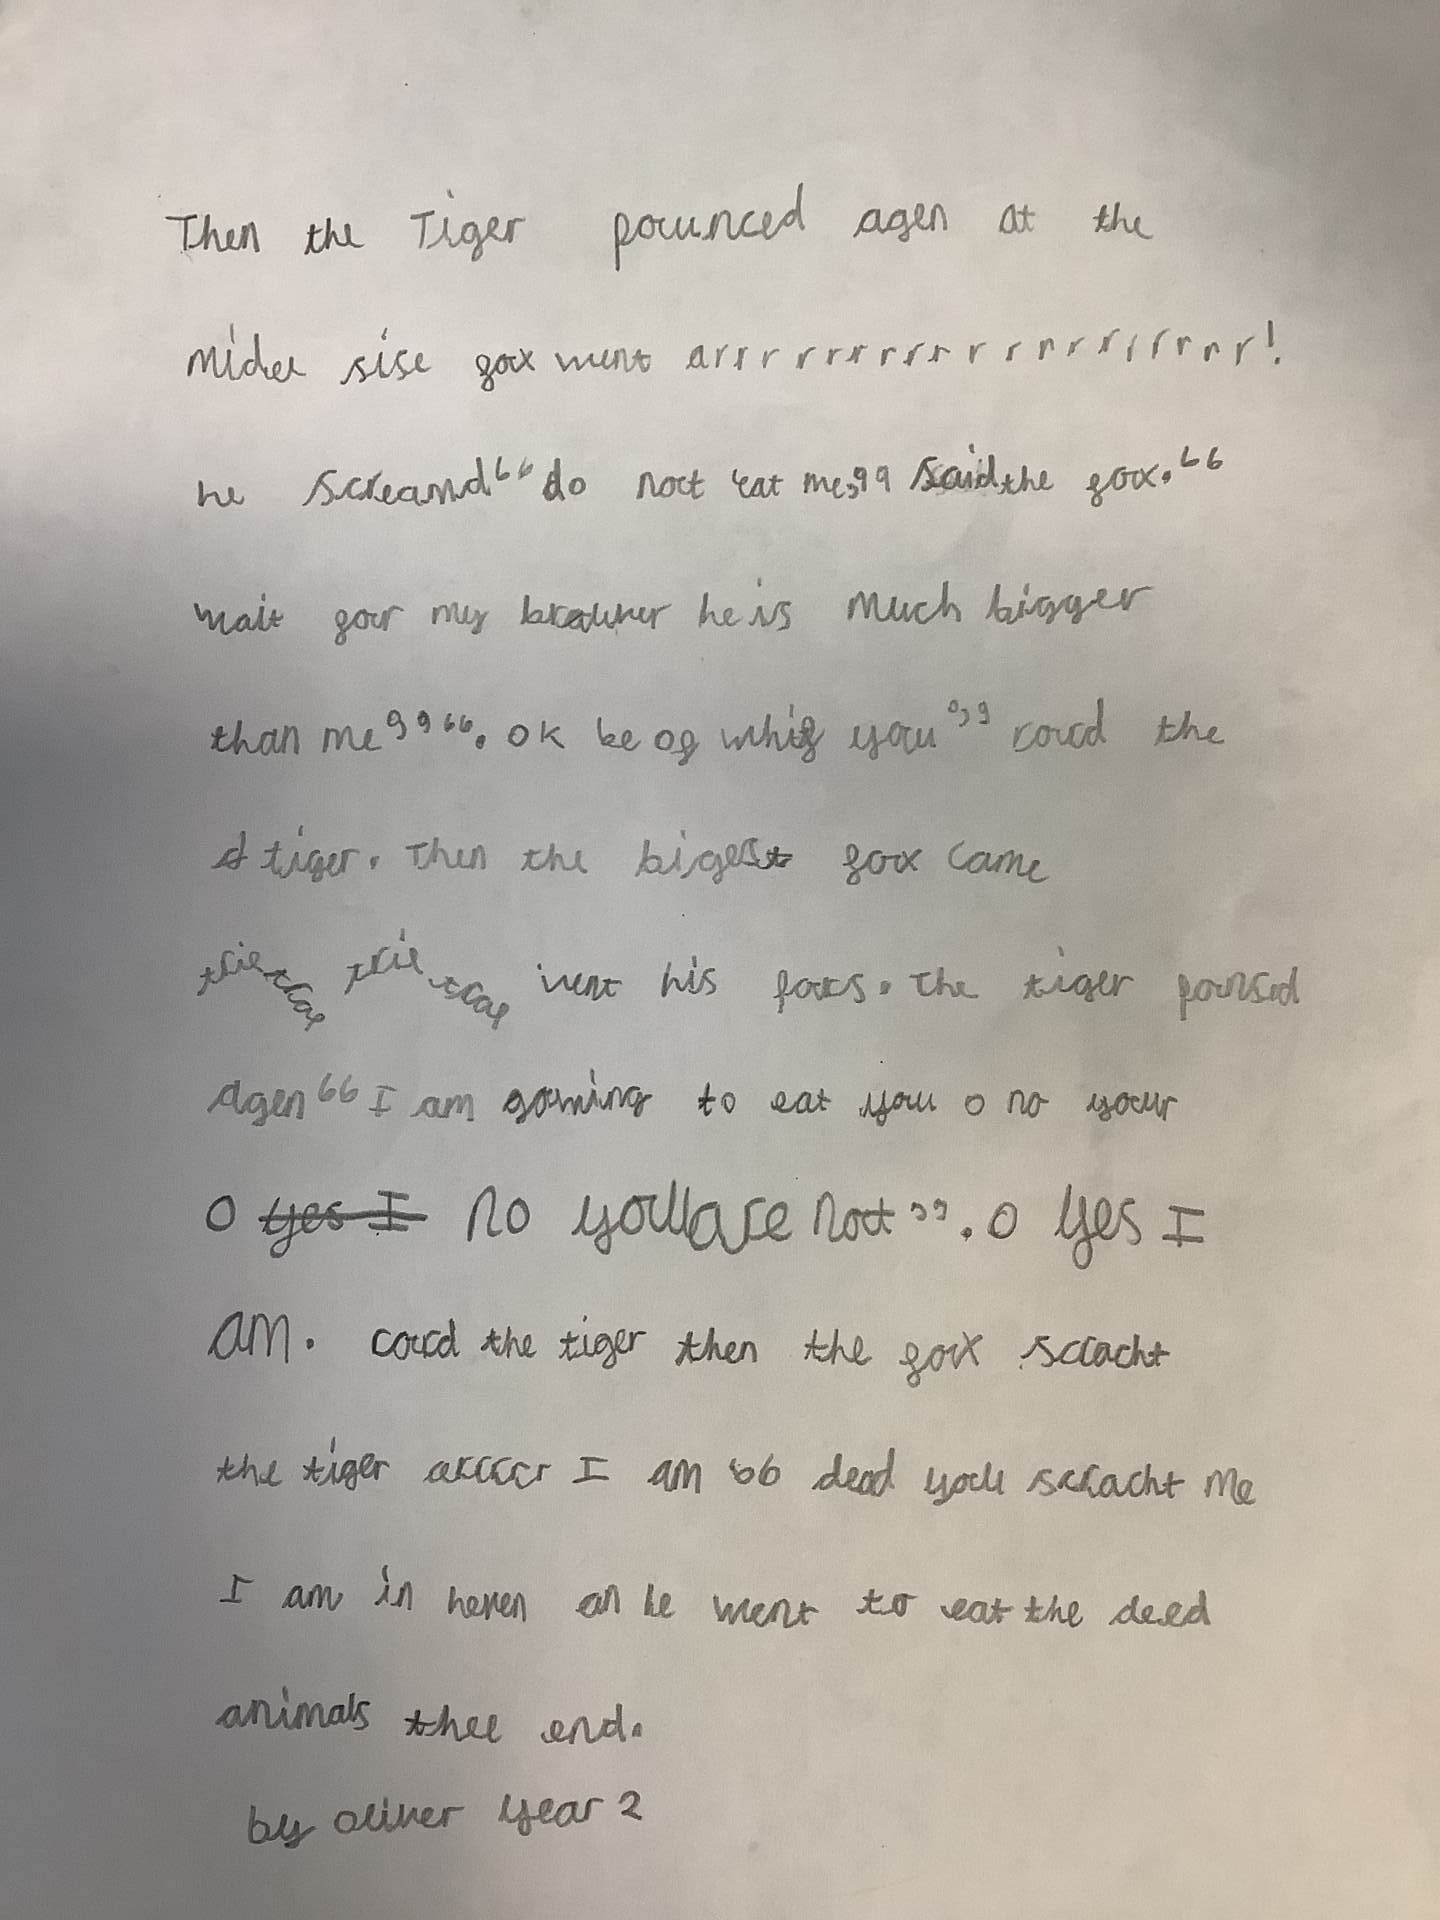 Then the Tiger pounced agen at the
midel sise fox went arrrrrrrrrrrrrrrrrrr!
he screamd “do not eat me,” said the fox. “
wait for my brauver he is much bigger
than me” “. ok be of whif you” rourd the
tiger. Then the bigest fox came
trie trap trie trap went his foots. The tiger pounsed
agen “ I am gowing to eat you o no your
o yes I no you are not”. o yes I
am. rourd the tiger then the fox scracht
the tiger arrrrr I am “ dead you scracht me
I am in heven an he went to eat the deed
animals thee end.
by oliver year 2